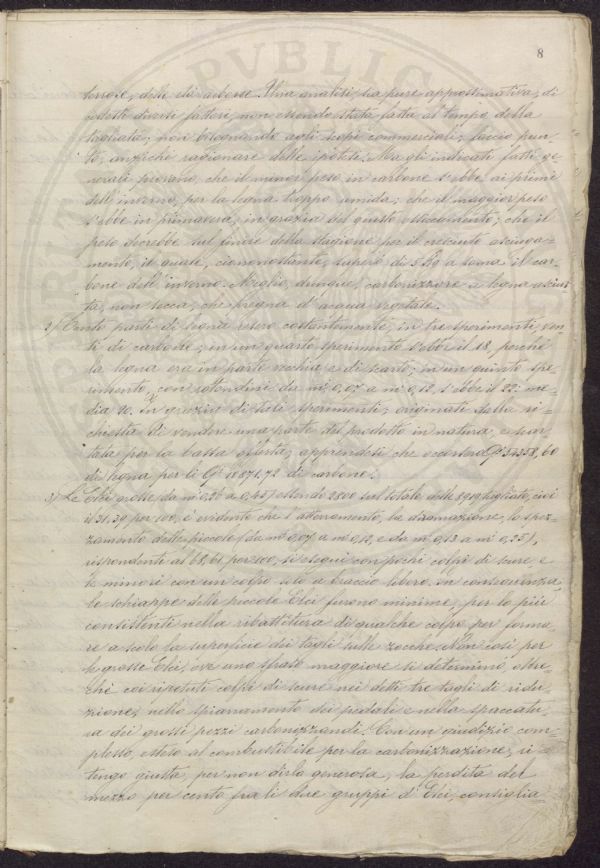 8
terrose, delle elci adesse. Una analisi, sia pure approssimativa, di
codesti diversi fattori, non essendo stata fatta al tempo della
tagliata; non bisognando agli scopi commerciali; faccio pun=
to, anzichè ragionare delle ipotesi. Ma gli indicati fatti ge=
nerali provano, che il minor peso in carbone s'ebbe ai primi
dell'inverno, per la legna troppo umida; che il maggior peso
s'ebbe in primavera, in grazia del giusto ; che il
peso decrebbe sul finire della stagione per il cresciuto asciuga=
mento, il quale, ciononostante, superò di a soma il car=
bone dell'inverno. Meglio, dunque, carbonizzare a legna asciut=
ta, non secca, che pregna d'acqua vegetale.
2) Cento parti di legna resero costantemente, in tre sperimenti, ven=
ti di carbone; in un quarto sperimento s'ebbe il 18, perchè
la legna era in parte vecchia e di scarto; in un quinto spe=
rimento, con tondini da m.i 0,07 a m.i 0,12, s'ebbe il 22: me=
dia 20. In grazia di tali sperimenti, originati dalla ri=
chiesta di vendere una parte del prodotto in natura, e scar=
tata per la bassa offerta, apprendesi che occorsero Q.li 52358,60
di legna per li Q.li 10471.72 di carbone.
3) Le Elci grosse da m.i 0,26 a 0,45, essendo 2800 sul totale delle 8920 tagliate, cioè
il 31,39 per 100, è evidente che l'atterramento, la diramazione, lo spez=
zamento delle piccole, da m.i 0,07 a m.i 0,12, e da m.i 0,13 a m.i 0,25,
rispondenti al 68,61 per 100, si eseguì con pochi colpi di scure, e
le minori con un colpo solo a braccio libero. In conseguenza,
le schiappe delle piccole Elci furono minime, per lo più
consistenti nella ribattitura di qualche colpo per forma=
re a scolo la superficie dei tagli sulle zocche. Non così per
le grosse Elci, ove uno spreco maggiore si determinò, oltre=
chè coi ripetuti colpi di scure nei detti tre tagli di ridu=
zione, nello spianamento dei pedali e nella spaccatu=
ra dei grossi pezzi carbonizzandi. Con un giudizio com=
plesso, esteso al combustibile per la carbonizzazione, ri=
tengo giusta, per non dirla generosa, la perdita del
mezzo per cento fra li due gruppi d'Elci, consiglia